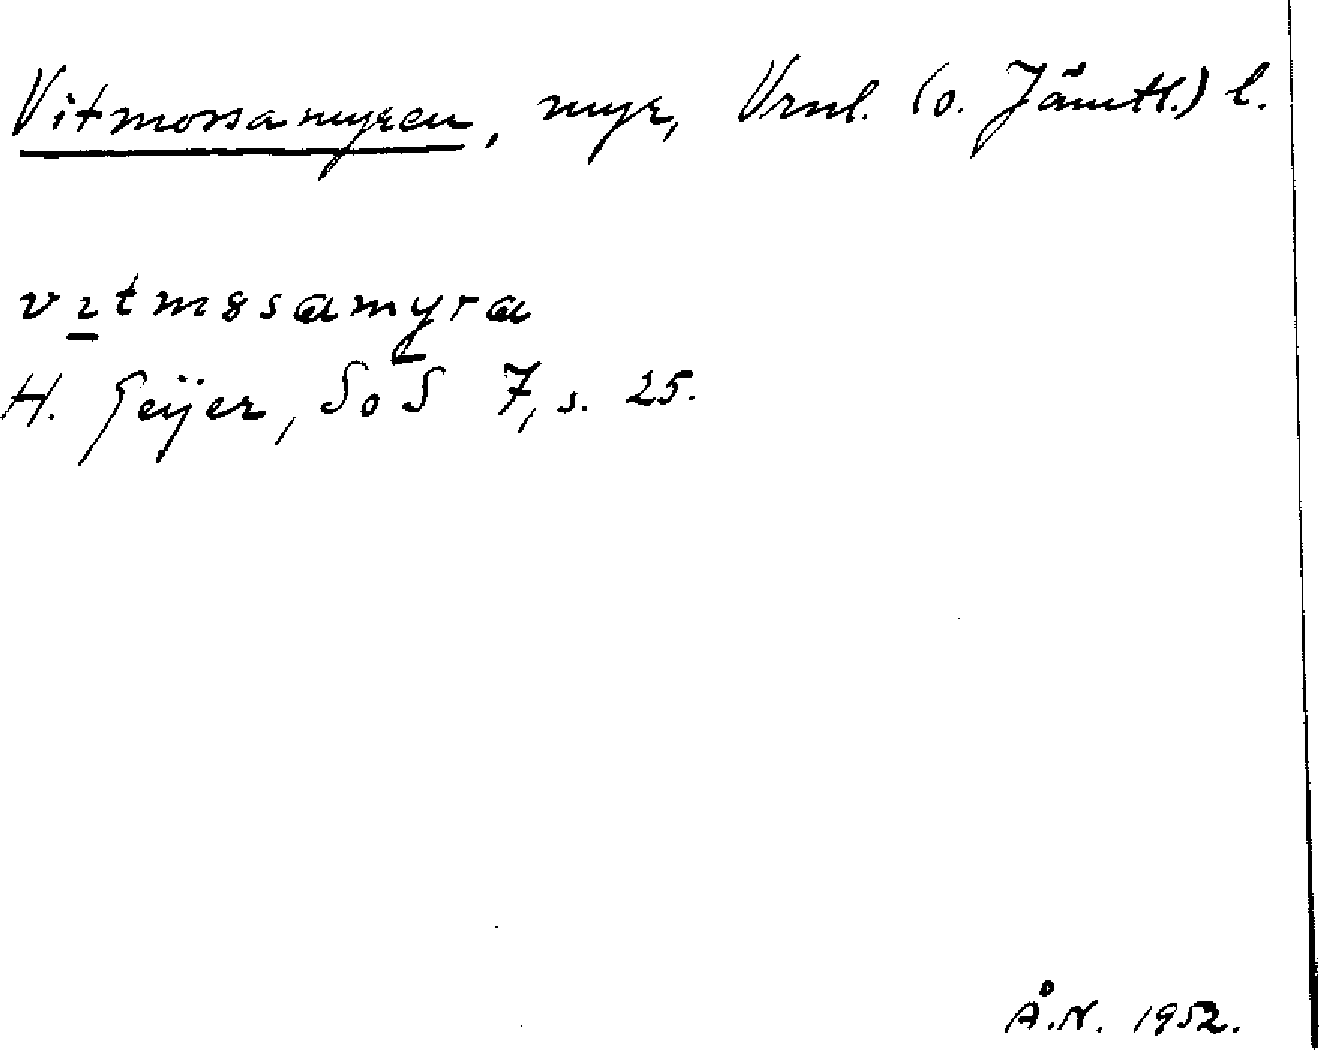 Vitmossamyren, myr, Vrml. (o. Jämtl.) l.
vıtm8sαmyrα
H. Geijer, SoS 7, s. 25.
Å.N. 1952.